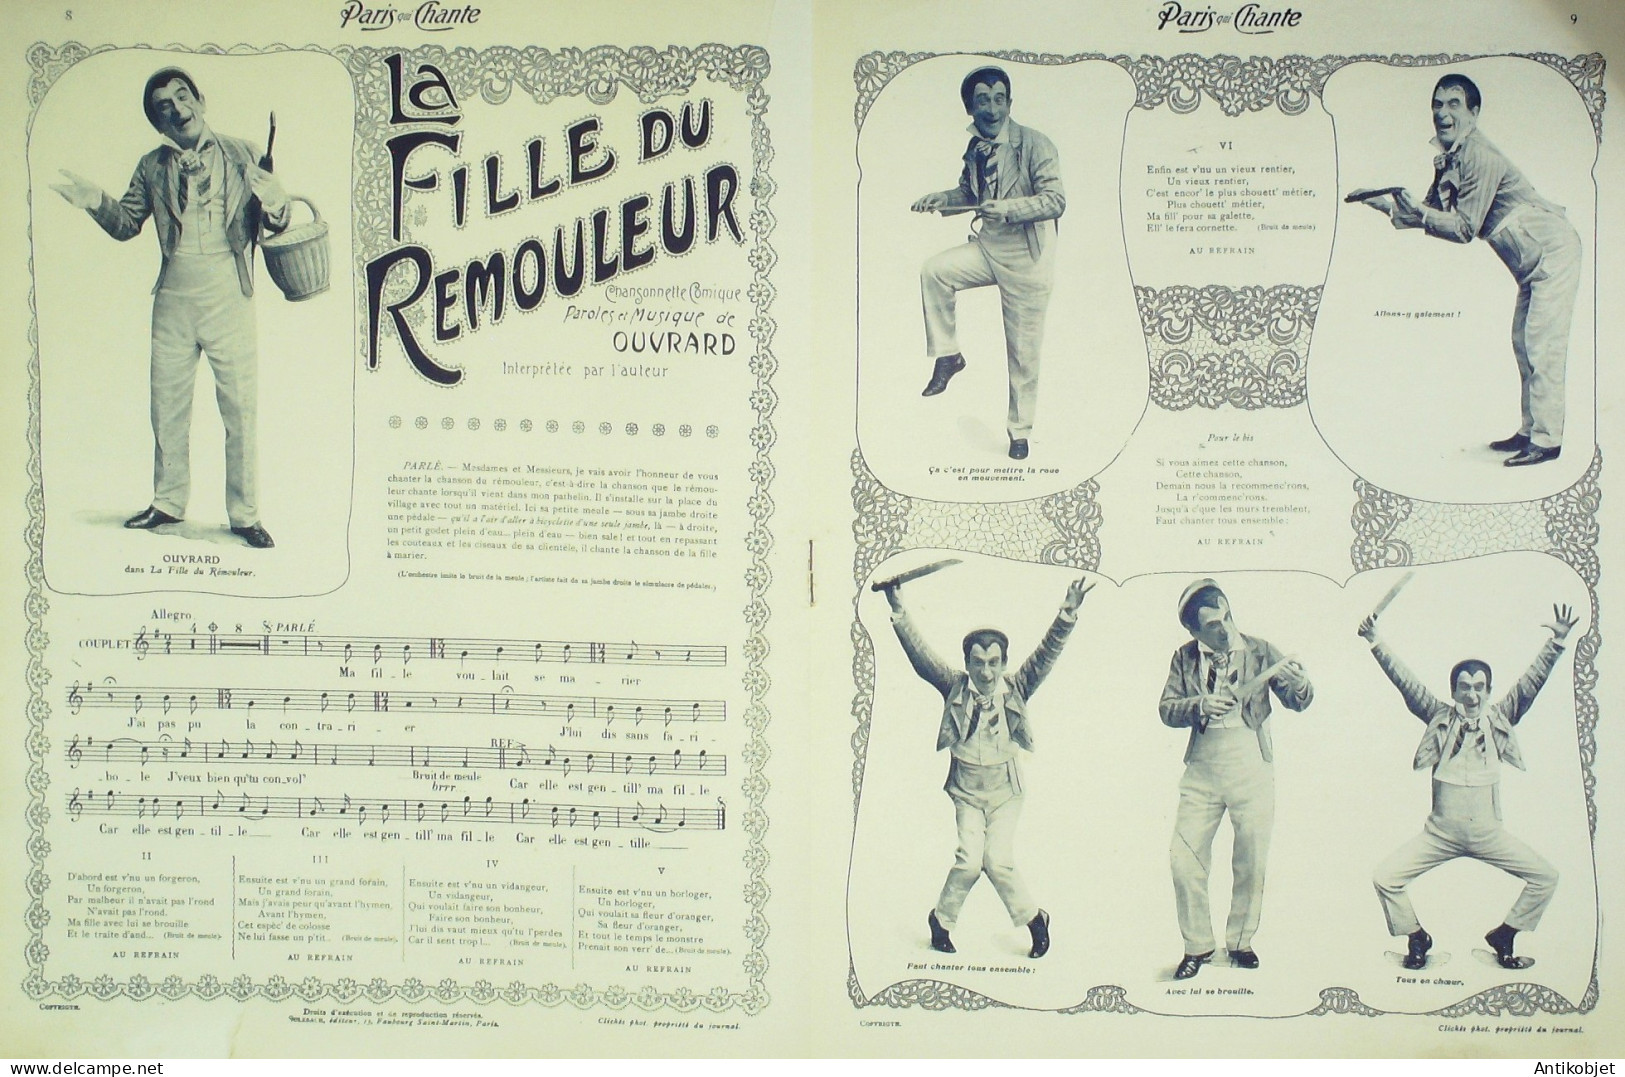 8
Paris qui Chante
La
Fille du
Remouleur
Chansonnette Comique
Paroles et Musique de
OUVRARD
Interprêtée par l'auteur
OUVRARD
dans La Fille du Rémouleur.
PARLÉ. — Mesdames et Messieurs, je vais avoir l'honneur de vous
chanter la chanson du rémouleur, c'est-à-dire la chanson que le rémou-
leur chante lorsqu'il vient dans mon pathelin. Il s'installe sur la place du
village avec tout un matériel. Ici sa petite meule — sous sa jambe droite
une pédale — qu'il a l'air d'aller à bicyclette d'une seule jambe, là — à droite,
un petit godet plein d'eau... plein d'eau — bien sale! et tout en repassant
les couteaux et les ciseaux de sa clientèle, il chante la chanson de la fille
à marier.
(L'orchestre imite le bruit de la meule; l'artiste fait de sa jambe droite le simulacre de pédaler.)
Allegro
4 8 PARLÉ
COUPLET
Ma fil _ le vou _ lait se ma _ rier
J'ai pas pu la con _ tra _ ri _ er J'lui dis sans fa _ ri _
_ bo _ le J'veux bien qu'tu con_vol' Bruit de meule REF. Car elle est gen _ till' ma fil _ le
brrr...
Car elle est gen _ til _ le Car elle est gen _ till' ma fil _ le Car elle est gen _ tille
II
D'abord est v'nu un forgeron,
Un forgeron,
Par malheur il n'avait pas l'rond
N'avait pas l'rond.
Ma fille avec lui se brouille
Et le traite d'and... (Bruit de meule).
AU REFRAIN
III
Ensuite est v'nu un grand forain,
Un grand forain,
Mais j'avais peur qu'avant l'hymen,
Avant l'hymen,
Cet espèc' de colosse
Ne lui fasse un p'tit... (Bruit de meule).
AU REFRAIN
IV
Ensuite est v'nu un vidangeur,
Un vidangeur,
Qui voulait faire son bonheur,
Faire son bonheur,
J'lui dis vaut mieux qu'tu l'perdes
Car il sent trop l... (Bruit de meule).
AU REFRAIN
V
Ensuite est v'nu un horloger,
Un horloger,
Qui voulait sa fleur d'oranger,
Sa fleur d'oranger,
Et tout le temps le monstre
Prenait son verr' de... (Bruit de meule).
AU REFRAIN
COPYRIGTH.
Droits d'exécution et de reproduction réservés.
éditeur, 13, Faubourg Saint-Martin, Paris.
Clichés phot. propriété du journal.
Paris qui Chante
9
Ça c'est pour mettre la roue
en mouvement.
VI
Enfin est v'nu un vieux rentier,
Un vieux rentier,
C'est encor' le plus chouett' métier,
Plus chouett' métier,
Ma fill' pour sa galette,
Ell' le fera cornette. (Bruit de meule)
AU REFRAIN
Allons-y gaiement !
Pour le bis
Si vous aimez cette chanson,
Cette chanson,
Demain nous la recommenc'rons,
La r'commenc'rons.
Jusqu'à c'que les murs tremblent,
Faut chanter tous ensemble:
AU REFRAIN
Faut chanter tous ensemble :
Avec lui se brouille.
Tous en chœur.
COPYRIGTH.
Clichés phot. propriété du journal.
Antikobjet